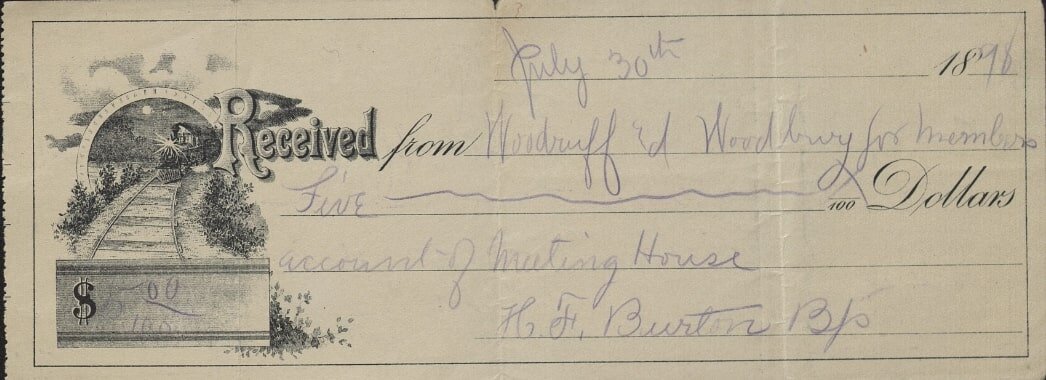 July 30th 1898
Received from Woodruff Ed Woodbury for members
Five X/100 Dollars
account of Meeting House
$ 5.00/100
H. F. Burton Bp